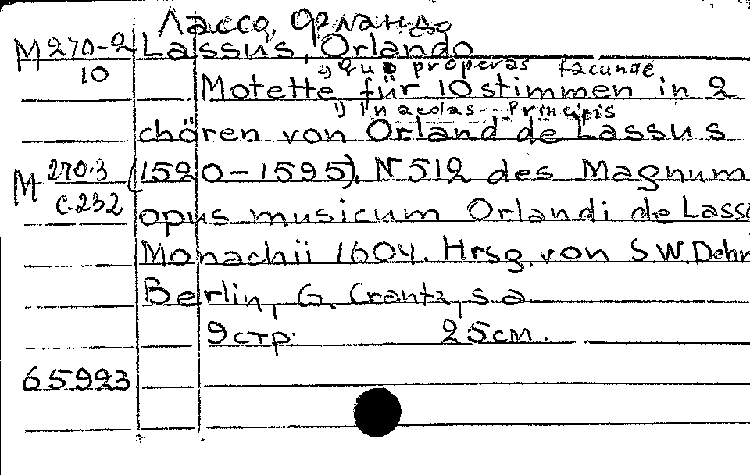 Лассо, Орландо
М 270-2 Lassus, Orlando
10
1) Quo properas facunde
Motette für 10 stimmen in 2
1) Principis
chören von Orland de Lassus
М 270-3 (1520-1595). N 512 des Magnum
с-232
opus musicum Orlandi de Lasso
Monachii 1604. Hrsg. von S.W. Dehn
Berlin, G. Crantz, s.a
9 стр. 25 см.
65993